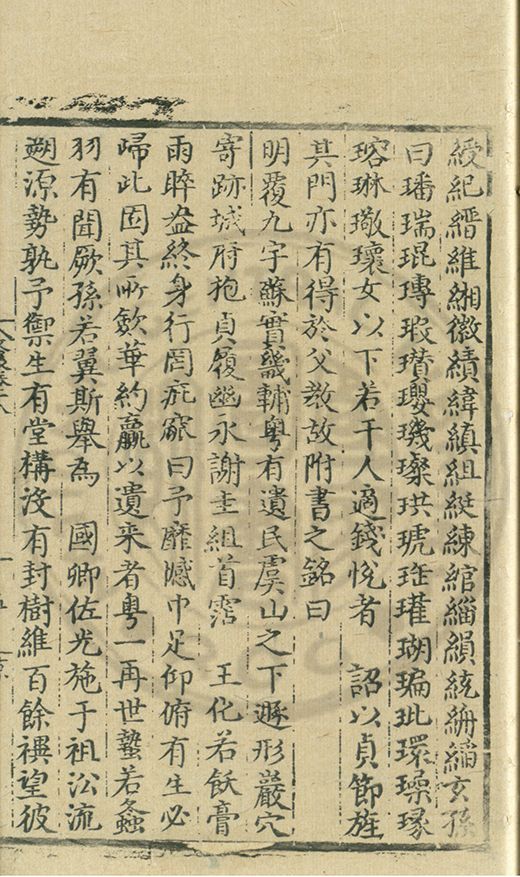 綬紀縉維緗徽績緯縝組綎練綰緇縜統絒緰玄孫
曰璠瑞琨瓙瑕瓚瓔璣璨珙琥珤瓘瑚瑞玼環璪瑑
瑢琳璥瓌女以下若干人適錢悅者 詔以貞節旌
其門亦有得於父教故附書之銘曰
明覆九字蘇實畿輔粵有遺民虞山之下遯形巖穴
寄跡城府抱貞履幽永謝圭組首霑 王化若飫膏
雨睟盎終身行罔疵窳曰予靡憾巾足仰俯有生必
歸此固其所歛華約贏以遺来者粵一再世蟄若蟲
羽有聞厥孫若翼斯舉為 國卿佐光施于祖沿流
遡源勢孰予禦生有堂構沒有封樹維百餘禩望彼